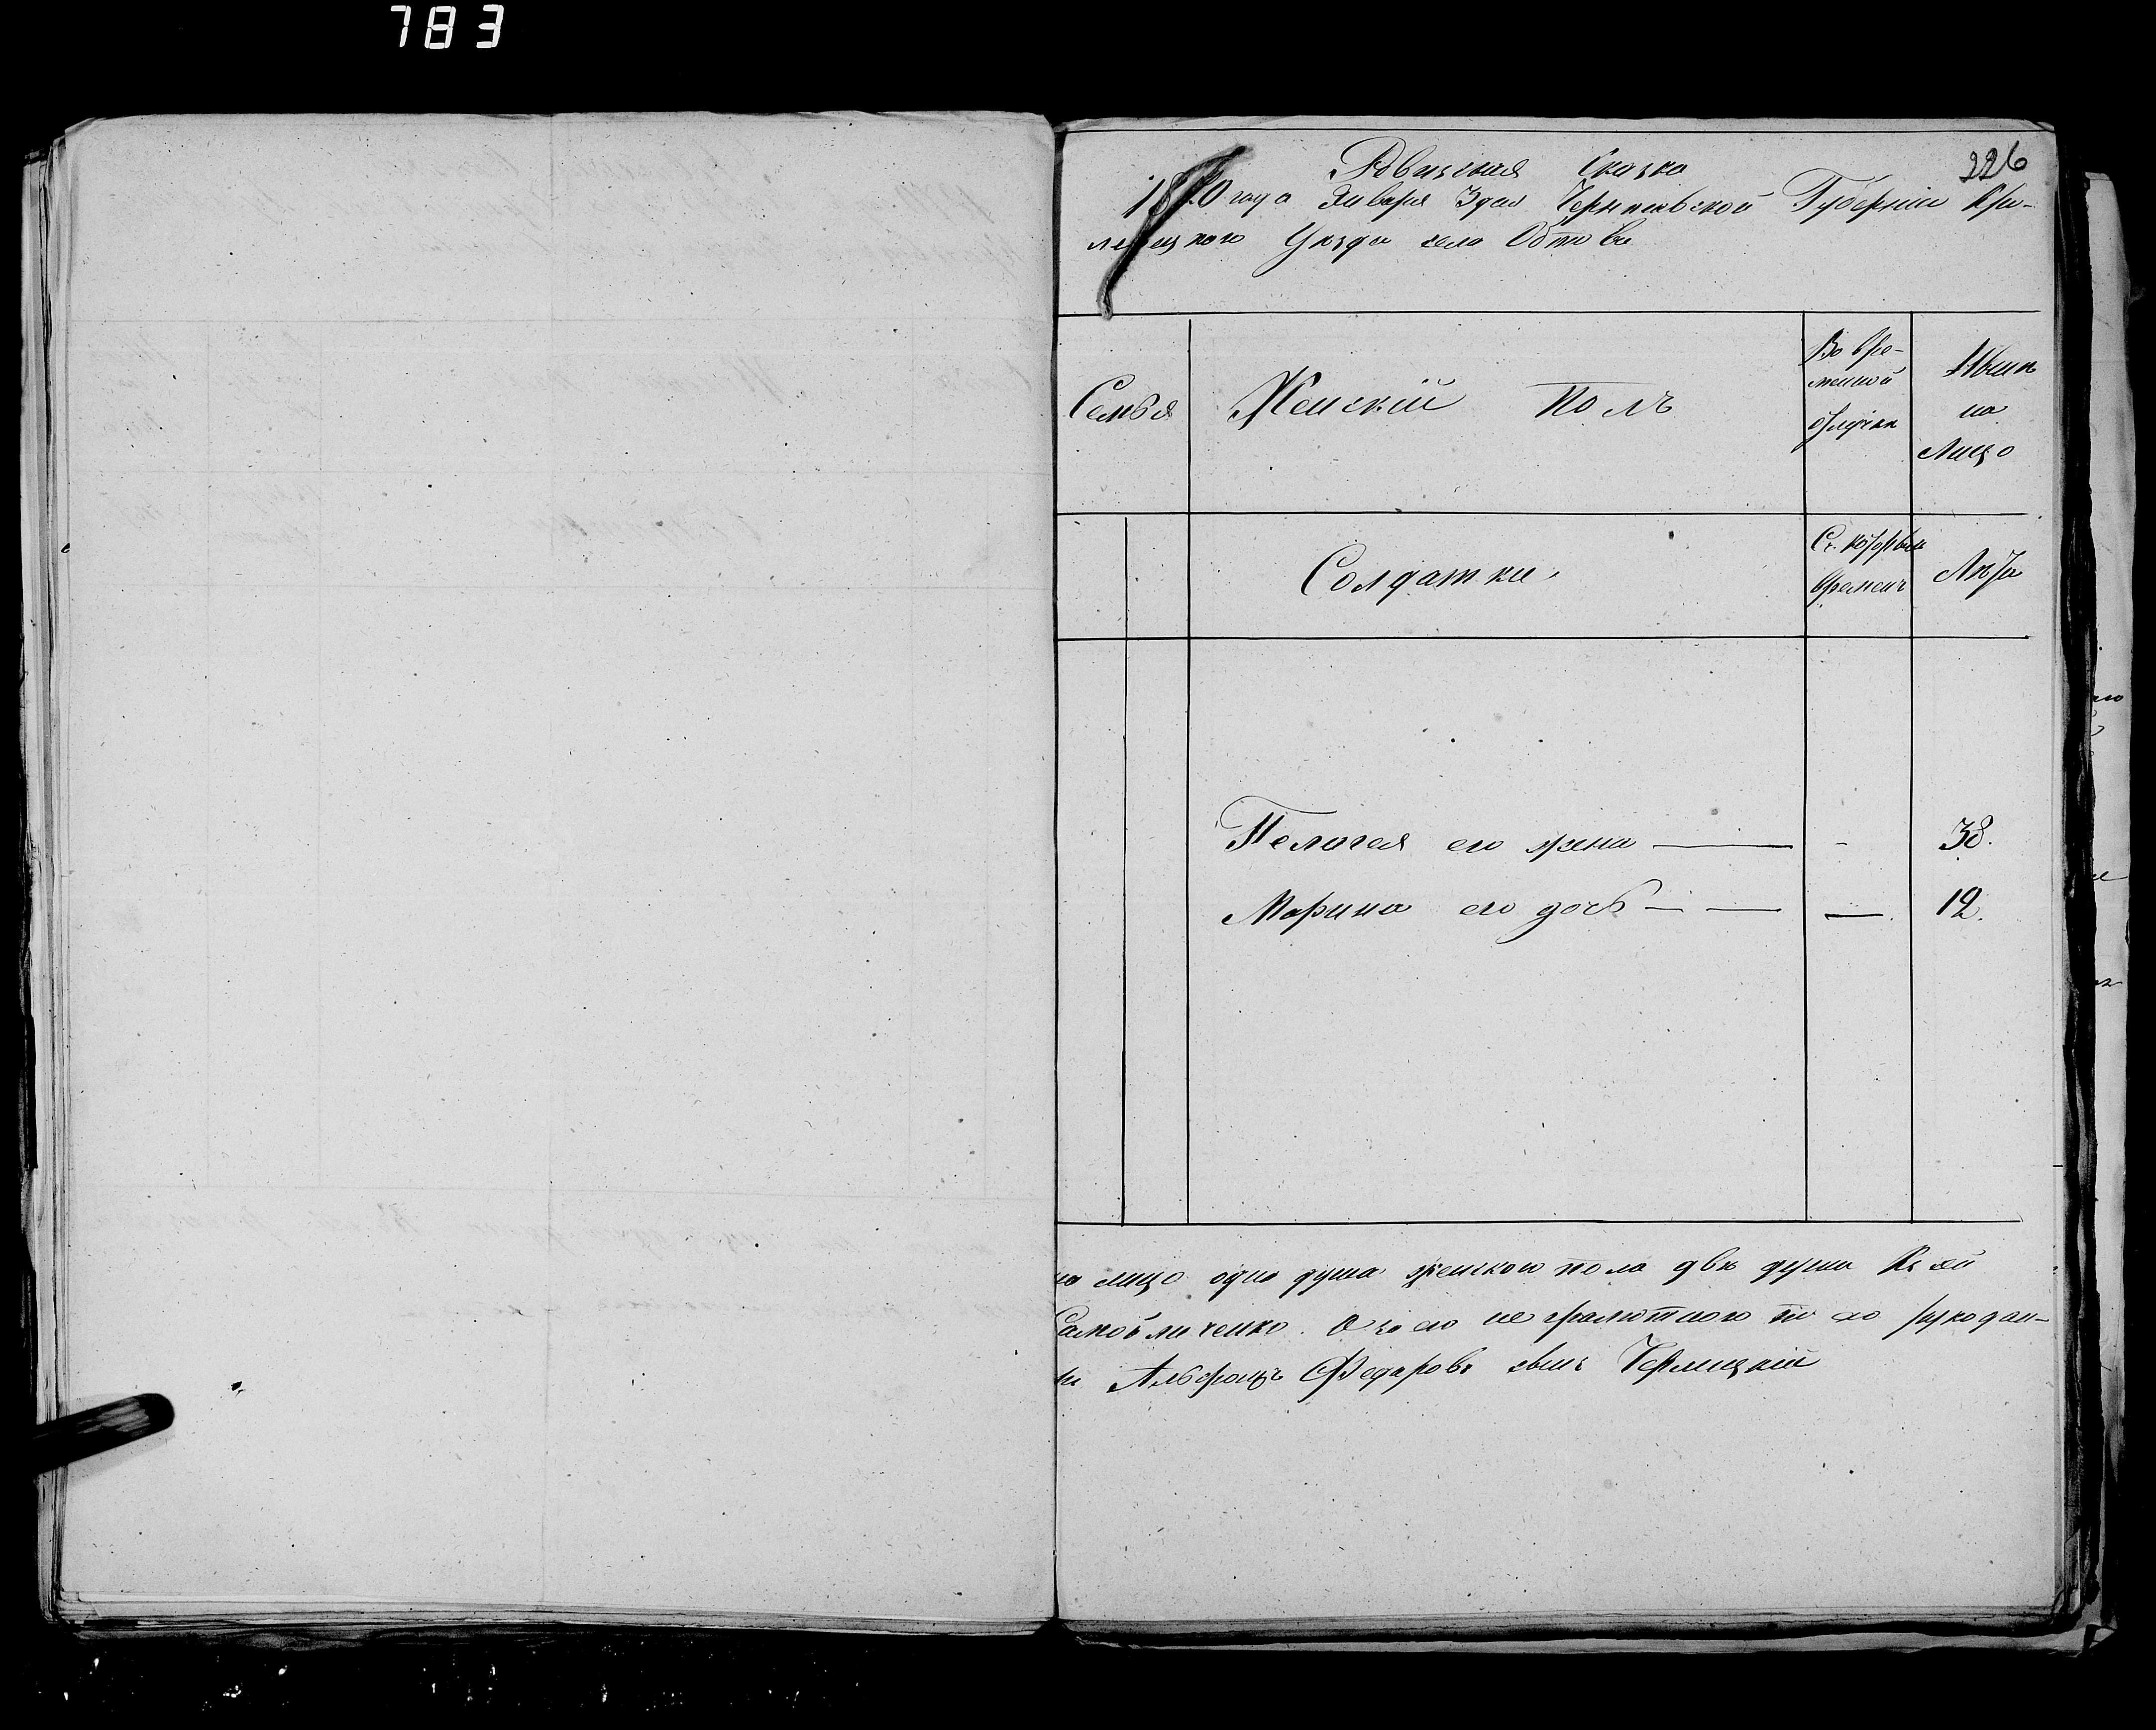 783
226
Ревизская Сказка
года Января 3 дня Черниговской Губерніи Кро-
левецкого Уезда село Обтова
Семья
Женскій полъ
Во вре-
менной
отлучки
Ныни
на
Лицо
Солдатки
Съ которого
времени
Лета
Пелагея его жена — - 38.
Марина его дочь — — — 12.
на лицо одна душа женского пола две души Къ сей
Самойличенко. А за его не грамотного по его рукодан-
Федоровъ сынъ